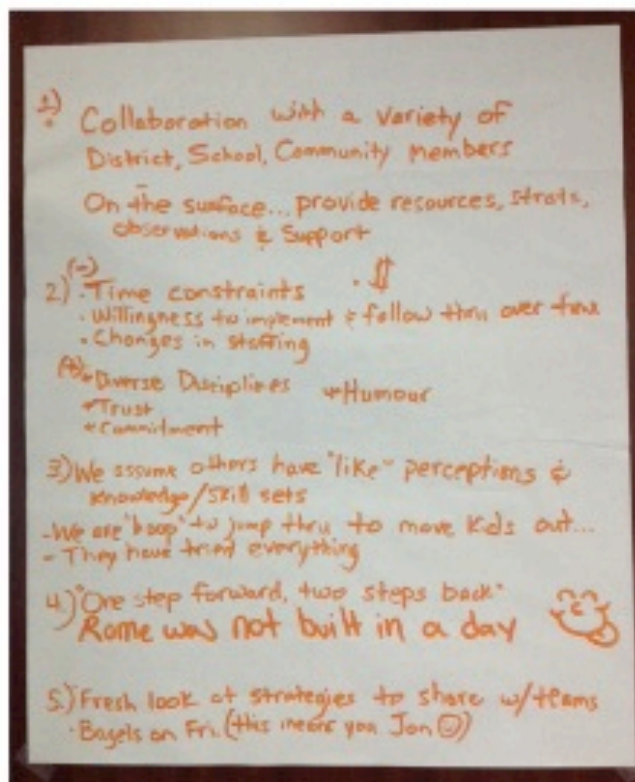 1) Collaboration with a variety of
District, School, Community Members
On the surface... provide resources, strats,
observations & Support
2) (-) · Time constraints · $
· Willingness to implement & follow thru over time
· Changes in staffing
(+) * Diverse Disciplines * Humour
* Trust
* Commitment
3.) We assume others have "like" perceptions &
knowledge/skill sets
- We are "hoop" to jump thru to move kids out...
- They have tried everything
4.) "One step forward, two steps back"
Rome was not built in a day
5.) Fresh look at strategies to share w/teams
· Bagels on Fri. (this means you Jan ☺)